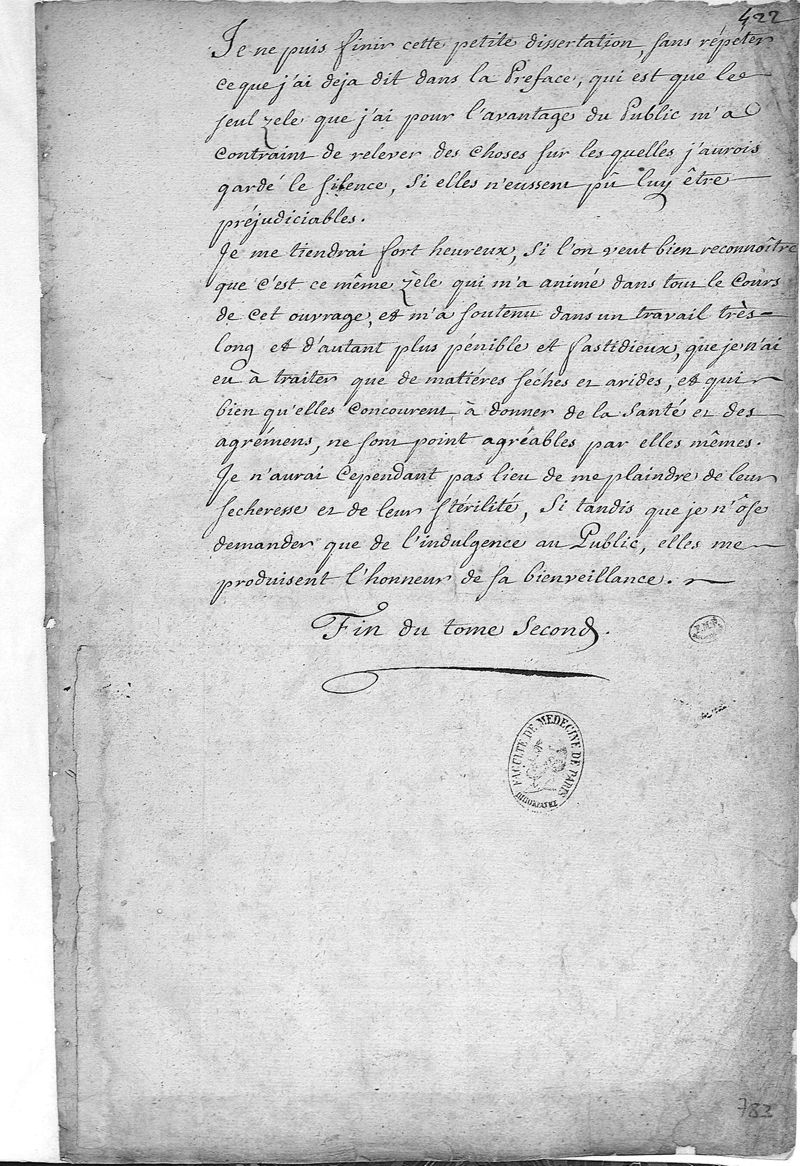 422
Je ne puis finir cette petite dissertation, sans répéter
ce que j'ai deja dit dans la Preface, qui est que le
seul zele que j'ai pour l'avantage du Public m'a
contraint de relever des choses sur les quelles j'aurois
gardé le silence, si elles n'eussent pû luy être
préjudiciables.
Je me tiendrai fort heureux, si l'on veut bien reconnoître
que c'est ce même zèle qui m'a animé dans tout le Cours
de cet ouvrage, et m'a soutenu dans un travail très-
long et d'autant plus pénible et fastidieux, que je n'ai
eu à traiter que de matiéres séches et arides, et qui
bien qu'elles concourent à donner de la Santé et des
agrémens, ne sont point agréables par elles mêmes.
Je n'aurai cependant pas lieu de me plaindre de leur
secheresse et de leur stérilité, si tandis que je n'ôse
demander que de l'indulgence au Public, elles me
produisent l'honneur de sa bienveillance.
Fin du tome Second.
FACULTE DE MEDECINE DE PARIS
783